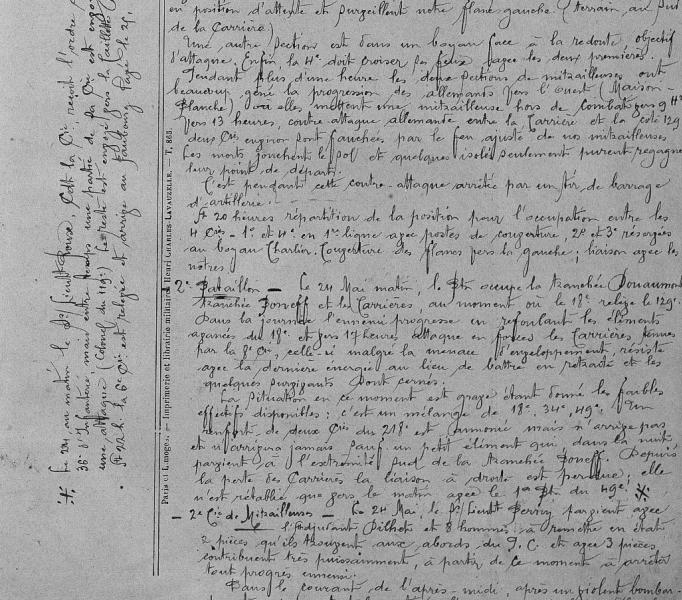 en position d'attente et surveillent notre flanc gauche (terrain au Sud
de la Carrière)
Une autre Section est dans un boyau face à la redoute, objectif
d'attaque. Enfin, la 4e doit croiser ses feux avec les deux premières.
Pendant plus d'une heure les deux Sections de mitrailleuses ont
beaucoup gêné la progression des allemands vers l'Ouest (Maison-
Blanche) où elles mettent une mitrailleuse hors de combat vers 9 H
Vers 13 heures, contre-attaque allemande entre la Carrière et la cote 129
deux Cies environ sont fauchées par le feu ajusté de nos mitrailleuses
Les morts jonchent le sol et quelques isolés seulement purent regagner
leur point de départ.
C'est pendant cette contre-attaque arrêtée par un tir de barrage
d'artillerie.
A 20 heures répartition de la position pour l'occupation entre les
4 Cies - 1e et 4e en 1e ligne avec postes de couverture, 2e et 3e réserves
au boyau Charlier. Couverture des flancs vers la gauche, liaison avec les
nôtres.
2e Bataillon - Le 24 Mai matin, le Btn occupe la tranchée Douaumont
tranchée Boneff et les Carrières, au moment où le 18e relève le 129e.
Dans la journée l'ennemi progresse en refoulant les éléments
avancés du 18e et vers 17 heures attaque en forces les Carrières, tenues
par la 8e Cie, celle-ci malgré la menace d'enveloppement, résiste
avec la dernière énergie au lieu de battre en retraite et les
quelques survivants sont cernés.
La situation en ce moment est grave étant donné les faibles
effectifs disponibles : c'est un mélange de 18e, 34e, 49e. Un
renfort de deux Cies du 218e est annoncé mais n'arrive pas
et n'arrivera jamais sauf un petit élément qui dans la nuit
parvient à l'extrémité Sud de la tranchée Boneff. Depuis
la perte des Carrières la liaison à droite est perdue, elle
n'est rétablie que vers le matin avec le 1er Btn du 49e.
- 2e Cie de Mitrailleuses - Le 24 Mai, le S/Lieutt parvient avec
l'Adjudant Pilhet et 8 hommes à remettre en état
2 pièces qu'ils trouvent aux abords du P.C. et avec 3 pièces
contribuent très puissamment, à partir de ce moment à arrêter
tout progrès ennemi.
Dans le courant de l'après-midi, après un violent bombar-
Paris et Limoges. — Imprimerie et librairie militaires Henri CHARLES-LAVAUZELLE. T. 863.
Le 24 au matin le S/Lieutt Pouse, Cdt la Cie reçoit l'ordre
36e d'Infanterie, mais entre temps une partie de sa Cie est engagée
une attaque (Colonel du 119e) Le reste est engagé vers la
At 22 h. la 6e Cie est relevée et arrive au faubourg Pavé le 25.